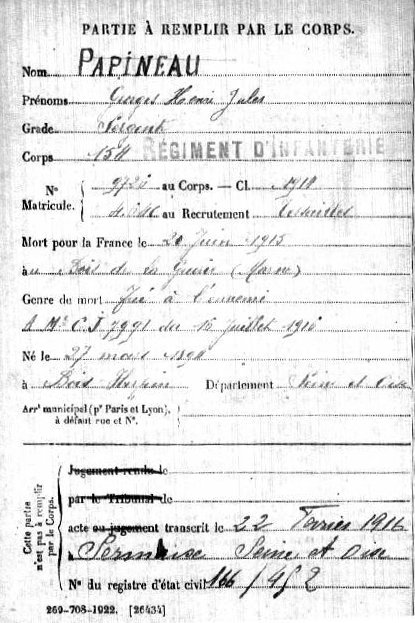 PARTIE À REMPLIR PAR LE CORPS.
Nom PAPINEAU
Prénoms Georges Henri Jules
Grade Sergent
Corps 154 RÉGIMENT D'INFANTERIE
N° Matricule. au Corps. — Cl. 1914
au Recrutement Versailles
Mort pour la France le 20 Juin 1915
à Bois de la Gruerie (Marne)
Genre de mort Tué à l'ennemi
du 15 Juillet
Né le 27 mars 1894
à Bois Département Seine et Oise
Arr' municipal (p' Paris et Lyon), à défaut rue et N°.
Cette partie n'est pas à remplir par le Corps.
Jugement rendu le
par le Tribunal de
acte ou jugement transcrit le 22 Février 1916
à Seine et Oise
N° du registre d'état civil 166/452
269-708-1922. [26434]